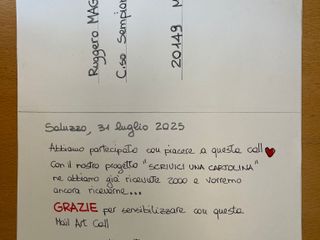 Ruggero MAG
C.so Sempion
20149 M
Saluzzo, 31 luglio 2025
Abbiamo partecipato con piacere a questa call
Con il nostro progetto "SCRIVICI UNA CARTOLINA"
ne abbiamo già ricevute 2000 e vorremo
ancora riceverne...
GRAZIE per sensibilizzare con questa
Mail Art Call